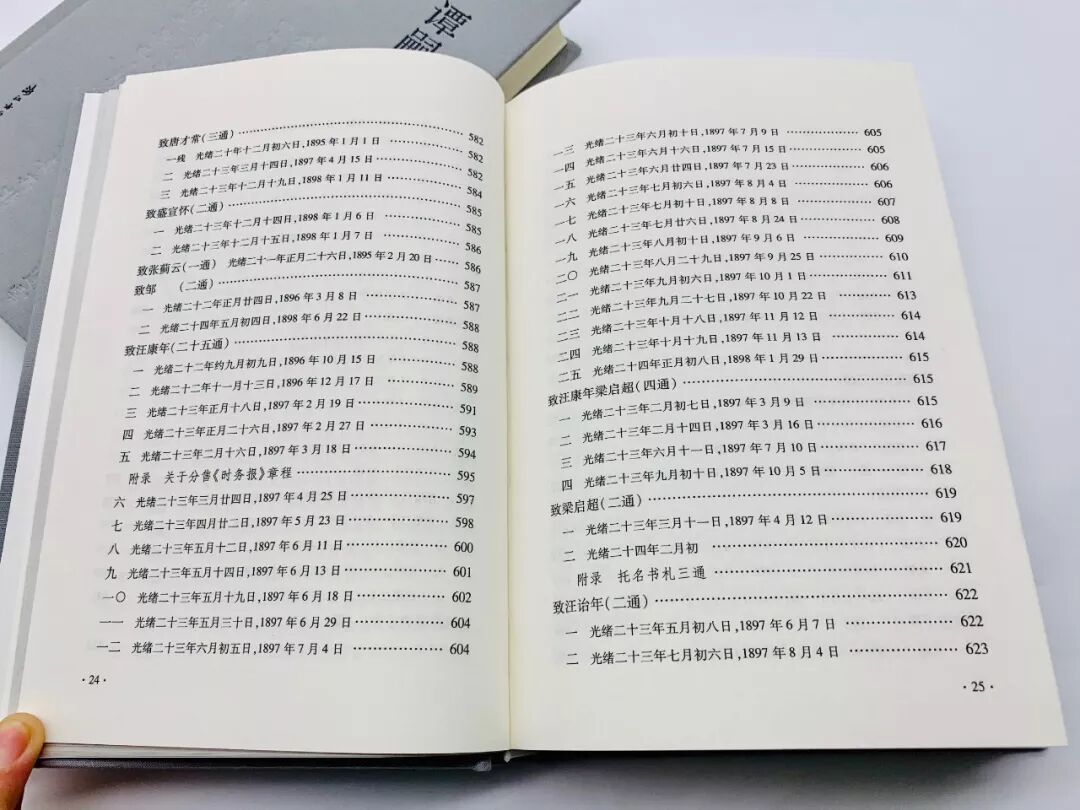 谭嗣
致唐才常(三通) 582
一线 光绪二十年十二月初六日,1895年1月1日 582
二 光绪二十三年三月十四日,1897年4月15日 582
三 光绪二十三年十二月十九日,1898年1月11日 584
致盛宣怀(二通) 585
一 光绪二十三年十二月十四日,1898年1月6日 585
二 光绪二十三年十二月十五日,1898年1月7日 586
致张蓟云(一通) 光绪二十一年正月二十六日,1895年2月20日 586
致邹 (二通) 587
一 光绪二十二年正月廿四日,1896年3月8日 587
二 光绪二十四年五月初四日,1898年6月22日 588
致汪康年(二十五通) 588
一 光绪二十二年约九月初九日,1896年10月15日 588
二 光绪二十二年十一月十三日,1896年12月17日 589
三 光绪二十三年正月十八日,1897年2月19日 591
四 光绪二十三年正月二十六日,1897年2月27日 593
五 光绪二十三年二月十六日,1897年3月18日 594
附录 关于分售《时务报》章程 595
六 光绪二十三年三月廿四日,1897年4月25日 597
七 光绪二十三年四月廿二日,1897年5月23日 598
八 光绪二十三年五月十二日,1897年6月11日 600
九 光绪二十三年五月十四日,1897年6月13日 601
一〇 光绪二十三年五月十九日,1897年6月18日 602
一一 光绪二十三年五月三十日,1897年6月29日 604
一二 光绪二十三年六月初五日,1897年7月4日 604
·24·
一三 光绪二十三年六月初十日,1897年7月9日 605
一四 光绪二十三年六月十六日,1897年7月15日 605
一五 光绪二十三年六月廿四日,1897年7月23日 606
一六 光绪二十三年七月初六日,1897年8月4日 606
一七 光绪二十三年七月初十日,1897年8月8日 607
一八 光绪二十三年七月廿六日,1897年8月24日 608
一九 光绪二十三年八月初十日,1897年9月6日 609
二〇 光绪二十三年八月二十九日,1897年9月25日 610
二一 光绪二十三年九月初六日,1897年10月1日 611
二二 光绪二十三年九月二十七日,1897年10月22日 613
二三 光绪二十三年十月十八日,1897年11月12日 614
二四 光绪二十三年十月十九日,1897年11月13日 614
二五 光绪二十四年正月初八日,1898年1月29日 615
致汪康年梁启超(四通) 615
一 光绪二十三年二月初七日,1897年3月9日 615
二 光绪二十三年二月十四日,1897年3月16日 616
三 光绪二十三年六月十一日,1897年7月10日 617
四 光绪二十三年九月初十日,1897年10月5日 618
致梁启超(二通) 619
一 光绪二十三年三月十一日,1897年4月12日 619
二 光绪二十四年二月初 620
附录 托名书札三通 621
致汪诒年(二通) 622
一 光绪二十三年五月初八日,1897年6月7日 622
二 光绪二十三年七月初六日,1897年8月4日 623
·25·